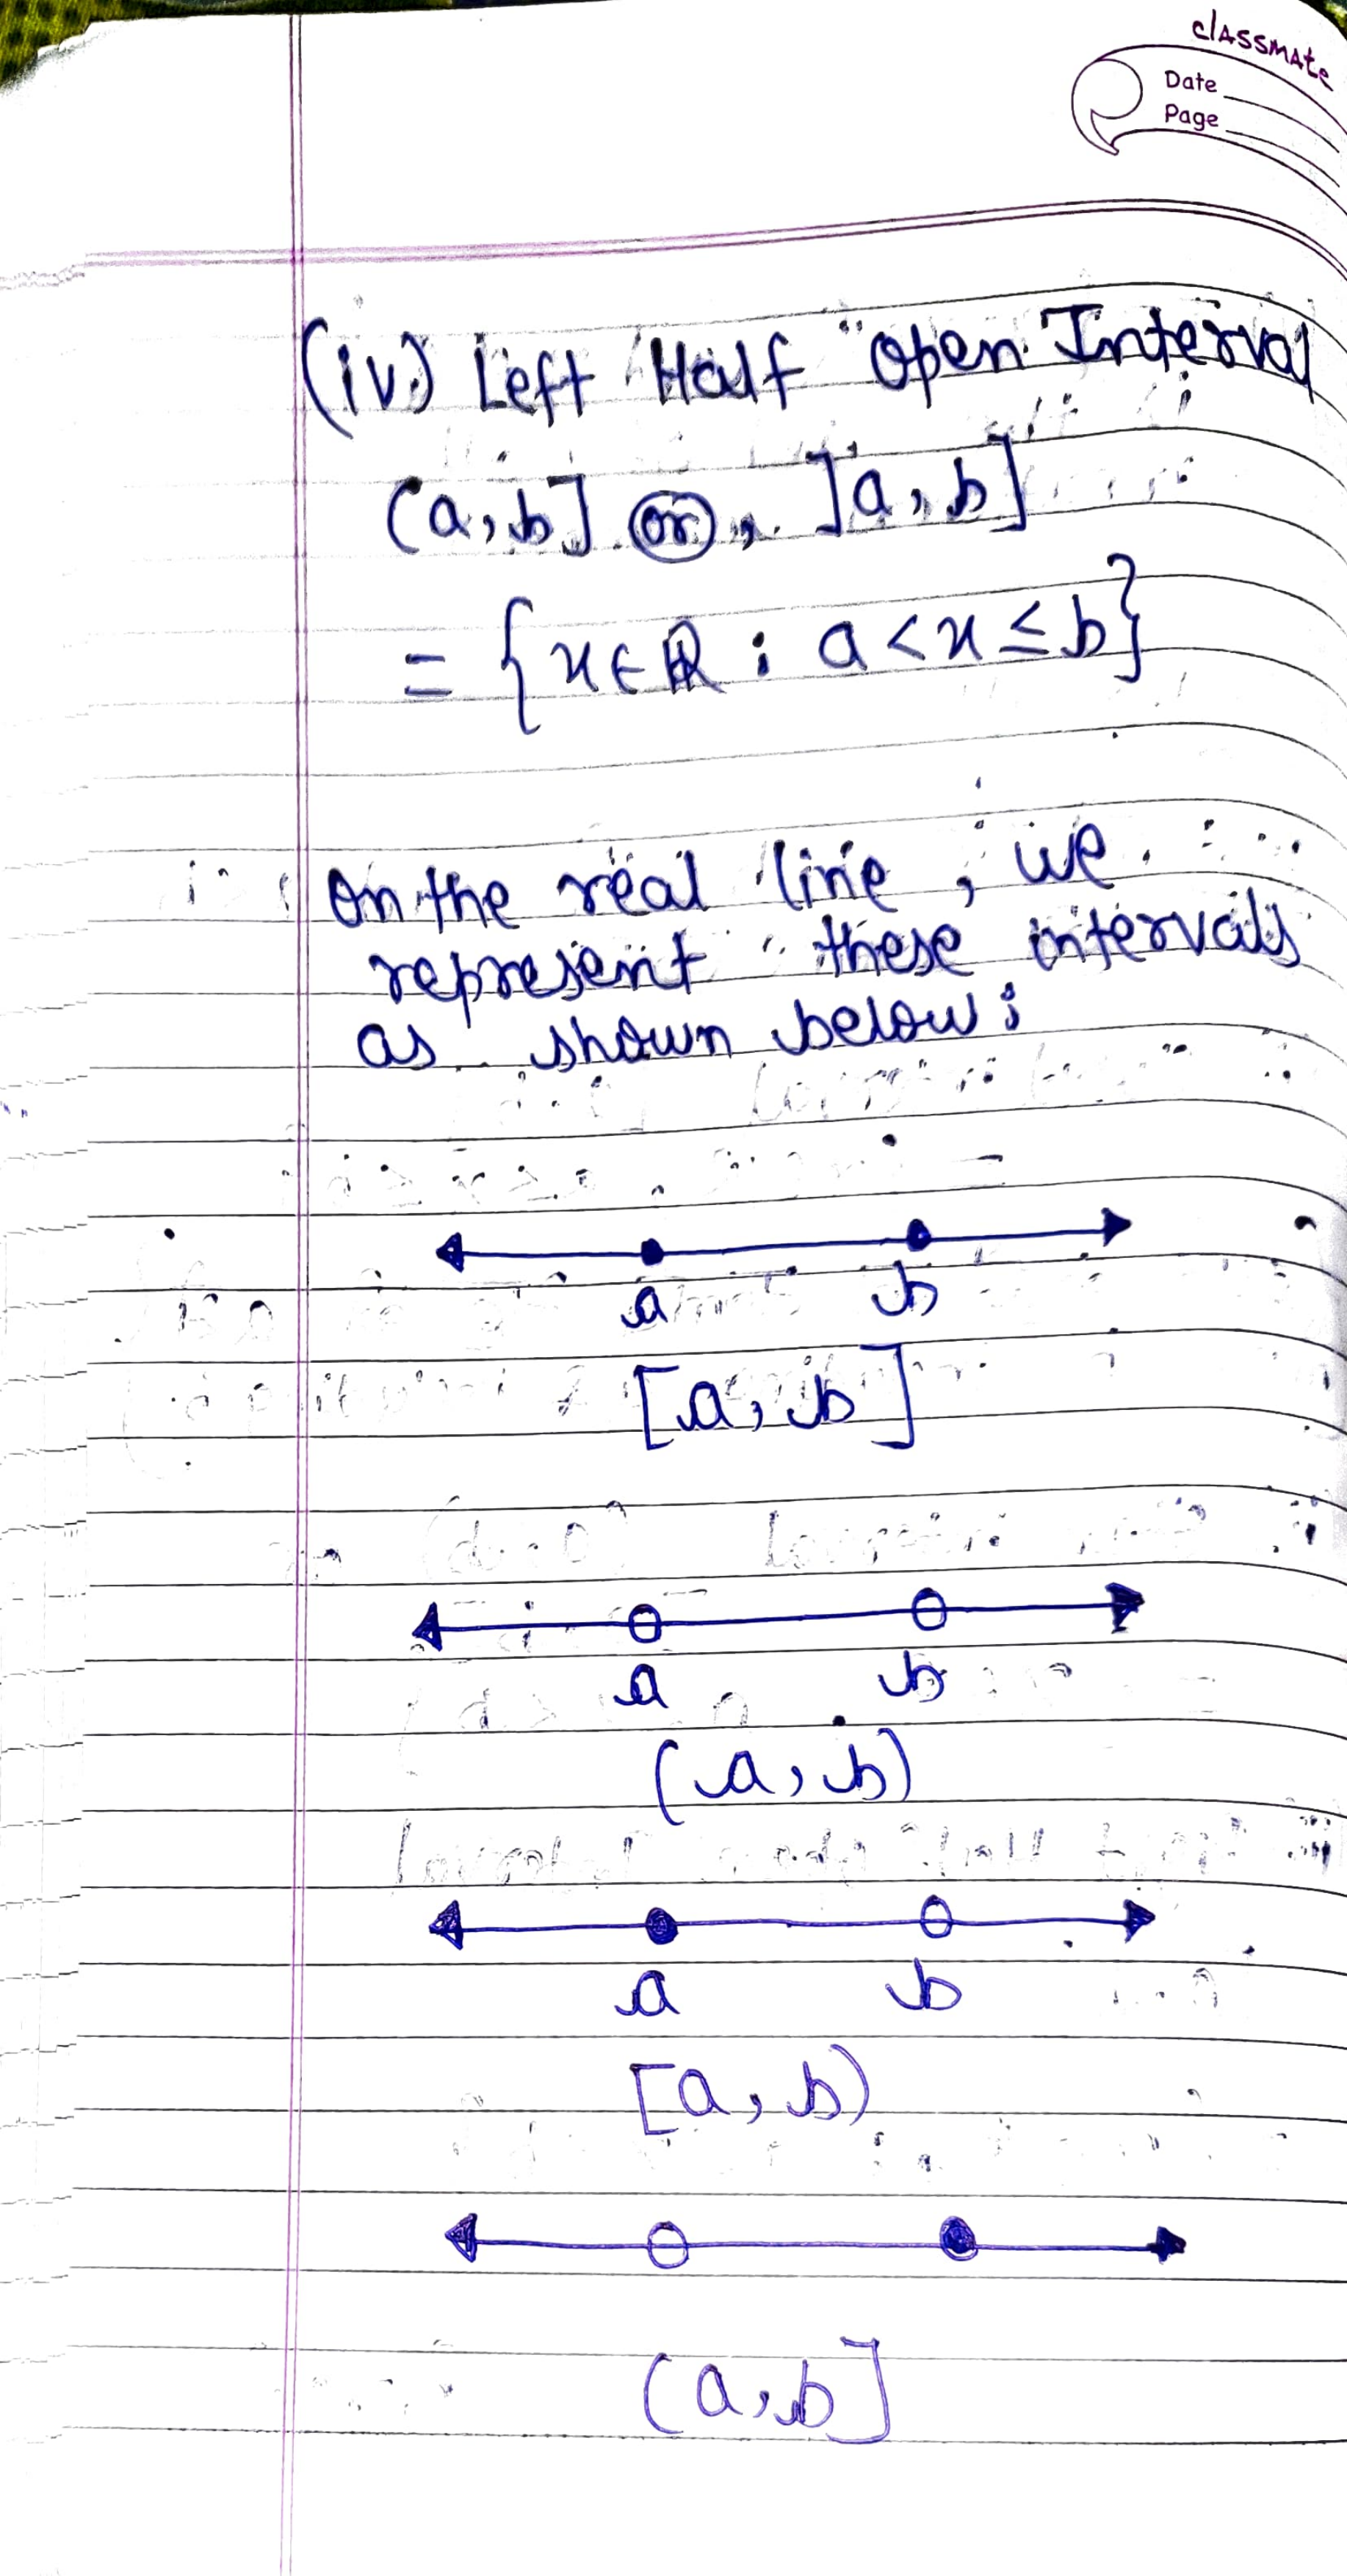 classmate
Date
Page
(iv) Left Half Open Interval
(a, b] or, ]a, b]
= {x ∈ R : a < x ≤ b}
On the real line, we
represent these intervals
as shown below:
a b
[a, b]
a b
(a, b)
a b
[a, b)
(a, b]